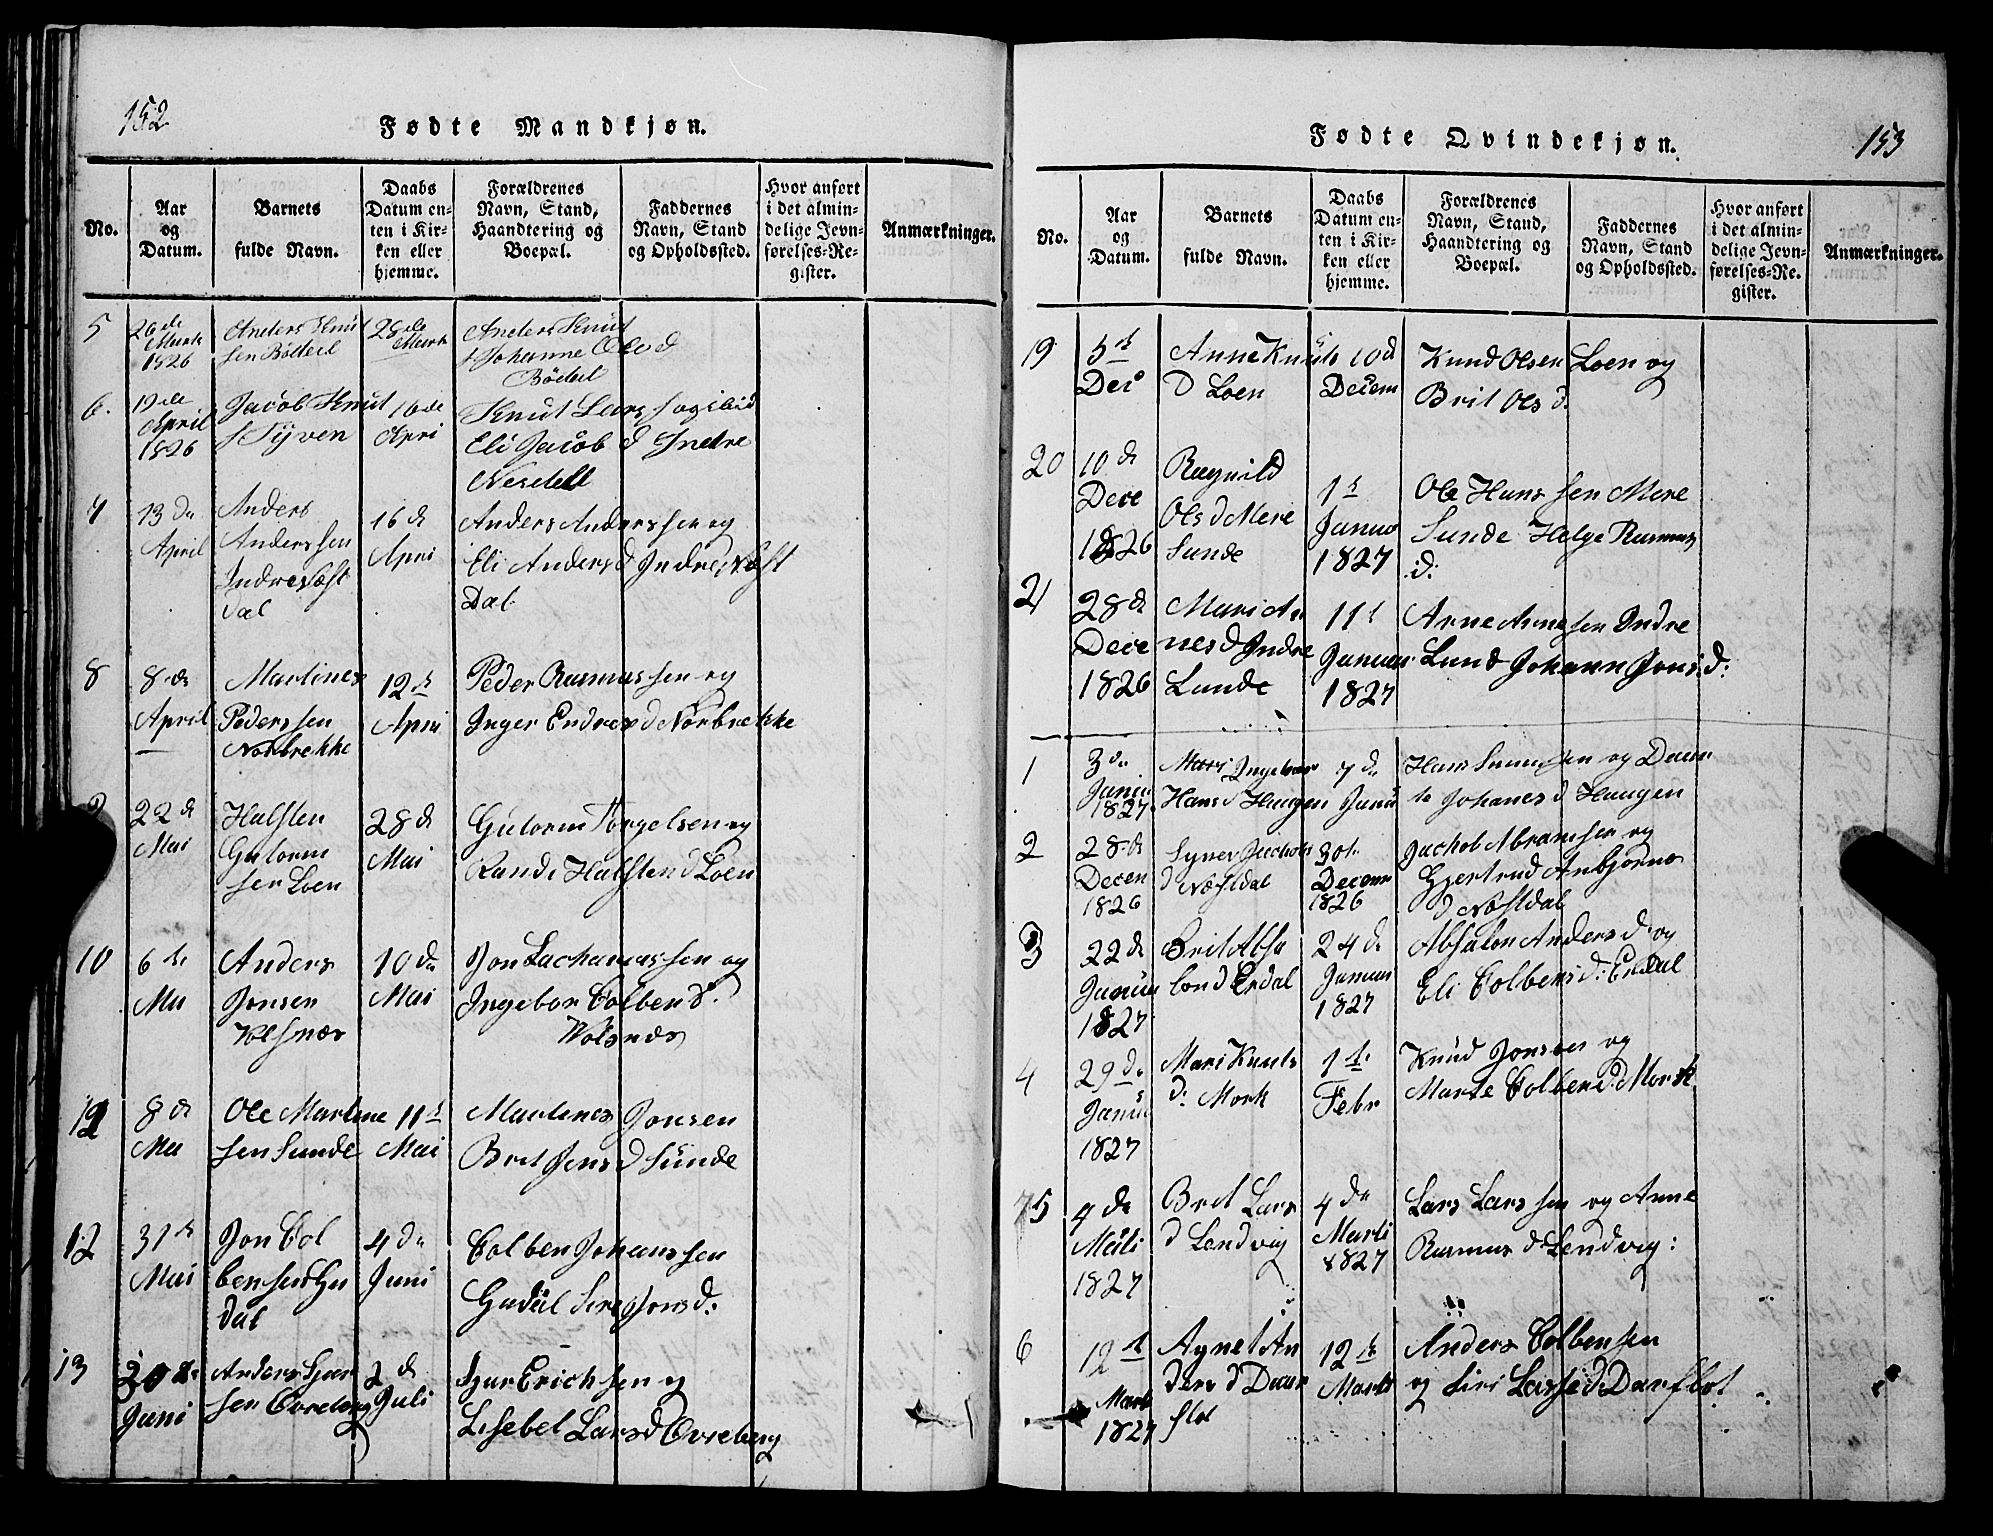 152
Fødte Mandkjøn.
No.
Aar og Datum.
Barnets fulde Navn.
Daabs Datum enten i Kirken eller hjemme.
Forældrenes Navn, Stand, Haandtering og Boepæl.
Faddernes Navn, Stand og Opholdssted.
Hvor anført i det almindelige Jevnførelses-Register.
Anmærkninger.
5
26de Marts 1826
Anders Knut
sen Bödeil
26de Marts
Anders Knut
s Johanne Ole d
Bödeil
6.
12de April 1826
Jacob Knut
s Tyven
16de Apri
Knut Lars s og ibid
Eli Jacob d Indre
Nesdell
7
13de April
Anders
Anders sen
Indre Næst
dal
16 d Apri
Anders Anders sen og
Eli Anders d Indre Næst
Dal
8
8de April
Martines
Peders sen
Norbrekke
12te Apri
Peder Rasmus sen og
Inger Endres d Norbrekke
22 d Mai
Halsten
Gutorm
sen Loen
28 d Mai
Gutorm Torgelsen og
Rande Halsten d Loen
10
6te Ma
Anders
Jonsen
Volsnæs
10 de Mai
Jon Sacharias sen og
Ingebor Colben d.
Wolsnæs
8 d Ma
Ole Martine
sen Sunde
11te Mai
Martines Jonsen
Brit Jens d Sunde
12
31te Mai
Jon Col
ben sen
dal
4 de Juni
Colben Johans sen
Jons d.
13
Juni
Anders
sen Evrebærg
2 d Juli
Erich sen og
Lisebel Lars d Ovreberg
153
Fødte Qvindekjøn.
No.
Aar og Datum.
Barnets fulde Navn.
Daabs Datum enten i Kirken eller hjemme.
Forældrenes Navn, Stand, Haandtering og Boepæl.
Faddernes Navn, Stand og Opholdssted.
Hvor anført i det almindelige Jevnførelses-Re. gister.
Anmærkninger.
19
5te Dec
Anne Knuts
D Loen
10 d Decem
Knud Olsen Loen og
Brit Ols d.
20
10 d Dece 1826
Ragnild
Ols d Mere
Sunde
1te Januar 1827
Ole Hans sen Mere
Sunde Helge Rasmus
d:
21
28 d Dece 1826
Mari Ar
nes d Indre
Lunde
11t Januar 1827
Arne Arne sen Indre
Lund Johann Jons d:
1
3de Janua 1827
Mari Ingebor
Hans d Haugen
7 de Janu
Hans sen og
Johanes d Haugen
2
28 d Decen 1826
Synev Jachobs
d Næstdal
30te Decem 1826
Jachob Abramsen og
Gjertrud Anbjørns
d Næstdal
3
22 d Januar 1827
Brit Absa
lon d Erdal
24 d Januar 1827
Absalon Anders d og
Eli Colbens d: Erdal
4
29 de Janua 1827
Mari Knuts
d: Mork
1te Febr
Knud Jonsen og
Marte Colben d: Mork
5
4 de 1827
Brit Lars
d Lendvig
4 de Marti 1827
Lars Lars sen og Anne
Rasmus d: Lendvig:
6
12te Marti 1827
Agnet An
ders d Daur
flot
12te Marti
Anders Colben sen
og Siri Lasse d: Darflot